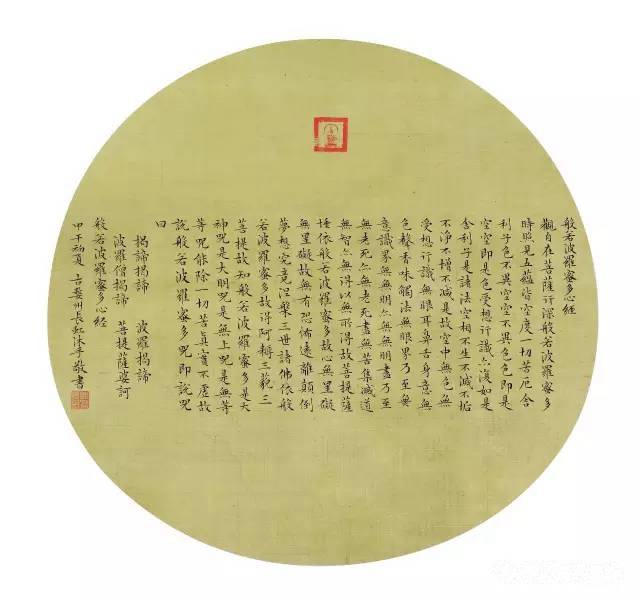 般若波羅蜜多心經
觀自在菩薩行深般若波羅蜜多
時照見五蘊皆空度一切苦厄舍
利子色不異空空不異色色即是
空空即是色受想行識亦復如是
舍利子是諸法空相不生不滅不垢
不净不增不減是故空中無色無
受想行識無眼耳鼻舌身意無
色聲香味觸法無眼界乃至無
意識界無無明亦無無明盡乃至
無老死亦無老死盡無苦集滅道
無智亦無得以無所得故菩提薩
埵依般若波羅蜜多故心無罣礙
無罣礙故無有恐怖遠離顛倒
夢想究竟涅槃三世諸佛依般
若波羅蜜多故得阿耨三藐三
菩提故知般若波羅蜜多是大
神咒是大明咒是無上咒是無等
等咒能除一切苦真實不虛故
說般若波羅蜜多咒即說咒
曰
揭諦揭諦 波羅揭諦
波羅僧揭諦 菩提薩婆訶
般若波羅蜜多心經
甲午初夏 古婺州長虹沐手敬書